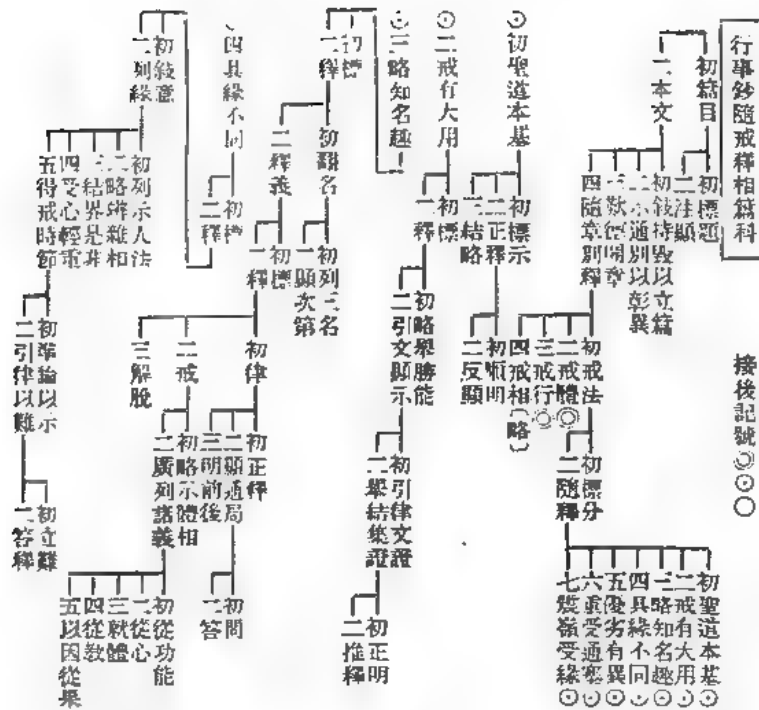 行事鈔隨戒釋相篇科
接後記號◎⊙○
初篇目
二本文
初標題
二注顯
初敍持毀以立篇
二示通別以彰異
三歎德開章
四隨章別釋
初戒法
二戒體◎
三戒行◎
四戒相(略)
初標分
二隨釋
初聖道本基⊙
二戒有大用⊙
三略知名趣⊙
四具緣不同⊙
五優劣有異⊙
六重受通塞⊙
七震嶺受緣⊙
⊙初聖道本基
初標示
二正釋
三結略
初順明
二反顯
⊙二戒有大用
初標
二釋
初略舉勝能
二引文顯示
初引律文證
二舉結集證
初正明
二推釋
⊙三略知名趣
初標
二釋
初翻名
二釋義
初列三名
二顯次第
初標
二釋
初律
二戒
三解脫
初正釋
二顯通局
三明前後
初問
二答
初略示體相
二廣列諸義
初從功能
二從心
三就體
四從教
五以因從果
⊙四具緣不同
初標
二釋
初敍意
二列緣
初列示人法
二略辨雜相
三結界是非
四受心輕重
五得戒時節
初準論以示
二引律以難
初立難
二答釋